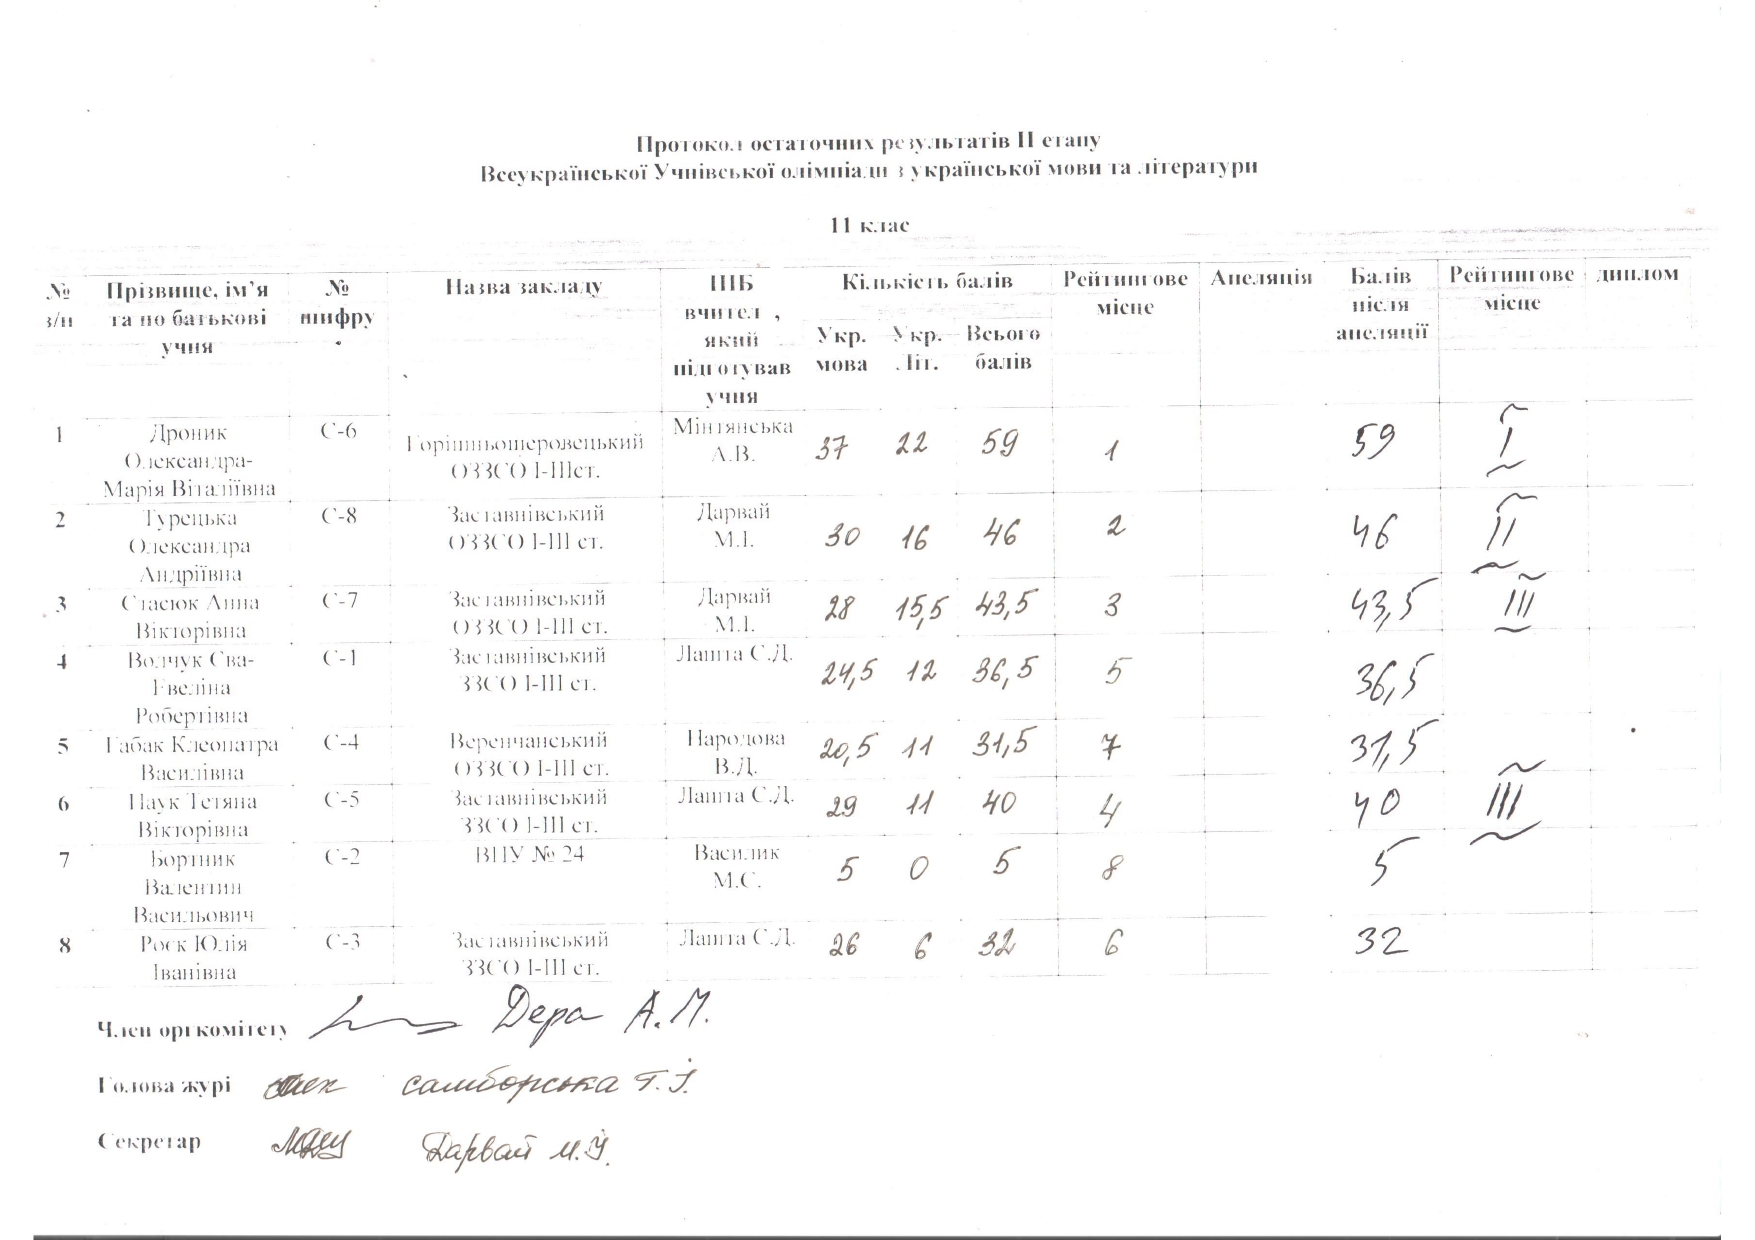 Протокол остаточних результатів ІІ етапу
Всеукраїнської Учнівської олімпіади з української мови та літератури
11 клас
№ з/п | Прізвище, ім’я та по батькові учня | № шифру | Назва закладу | ПІБ вчител , який підготував учня | Кількість балів | Рейтингове місце | Апеляція | Балів після апеляції | Рейтингове місце | диплом
Укр. мова | Укр. Літ. | Всього балів
1 | Дроник Олександра-Марія Віталіївна | С-6 | Горішньошеровецький ОЗЗСО І-ІІІст. | Мінтянська А.В. | 37 | 22 | 59 | 1 | 59 | I
2 | Турецька Олександра Андріївна | С-8 | Заставнівський ОЗЗСО І-ІІІ ст. | Дарвай М.І. | 30 | 16 | 46 | 2 | 46 | II
3 | Стасюк Анна Вікторівна | С-7 | Заставнівський ОЗЗСО І-ІІІ ст. | Дарвай М.І. | 28 | 15,5 | 43,5 | 3 | 43,5 | III
4 | Волчук Єва-Евеліна Робертівна | С-1 | Заставнівський ЗЗСО І-ІІІ ст. | Лашта С.Д. | 24,5 | 12 | 36,5 | 5 | 36,5
5 | Габак Клеопатра Василівна | С-4 | Веренчанський ОЗЗСО І-ІІІ ст. | Народова В.Д. | 20,5 | 11 | 31,5 | 7 | 31,5
6 | Паук Тетяна Вікторівна | С-5 | Заставнівський ЗЗСО І-ІІІ ст. | Лашта С.Д. | 29 | 11 | 40 | 4 | 40 | III
7 | Бортник Валентин Васильович | С-2 | ВПУ № 24 | Василик М.С. | 5 | 0 | 5 | 8 | 5
8 | Роєк Юлія Іванівна | С-3 | Заставнівський ЗЗСО І-ІІІ ст. | Лашта С.Д. | 26 | 6 | 32 | 6 | 32
Член оргкомітету Дера А.М.
Голова журі Самборська Г.І.
Секретар Дарвай М.І.